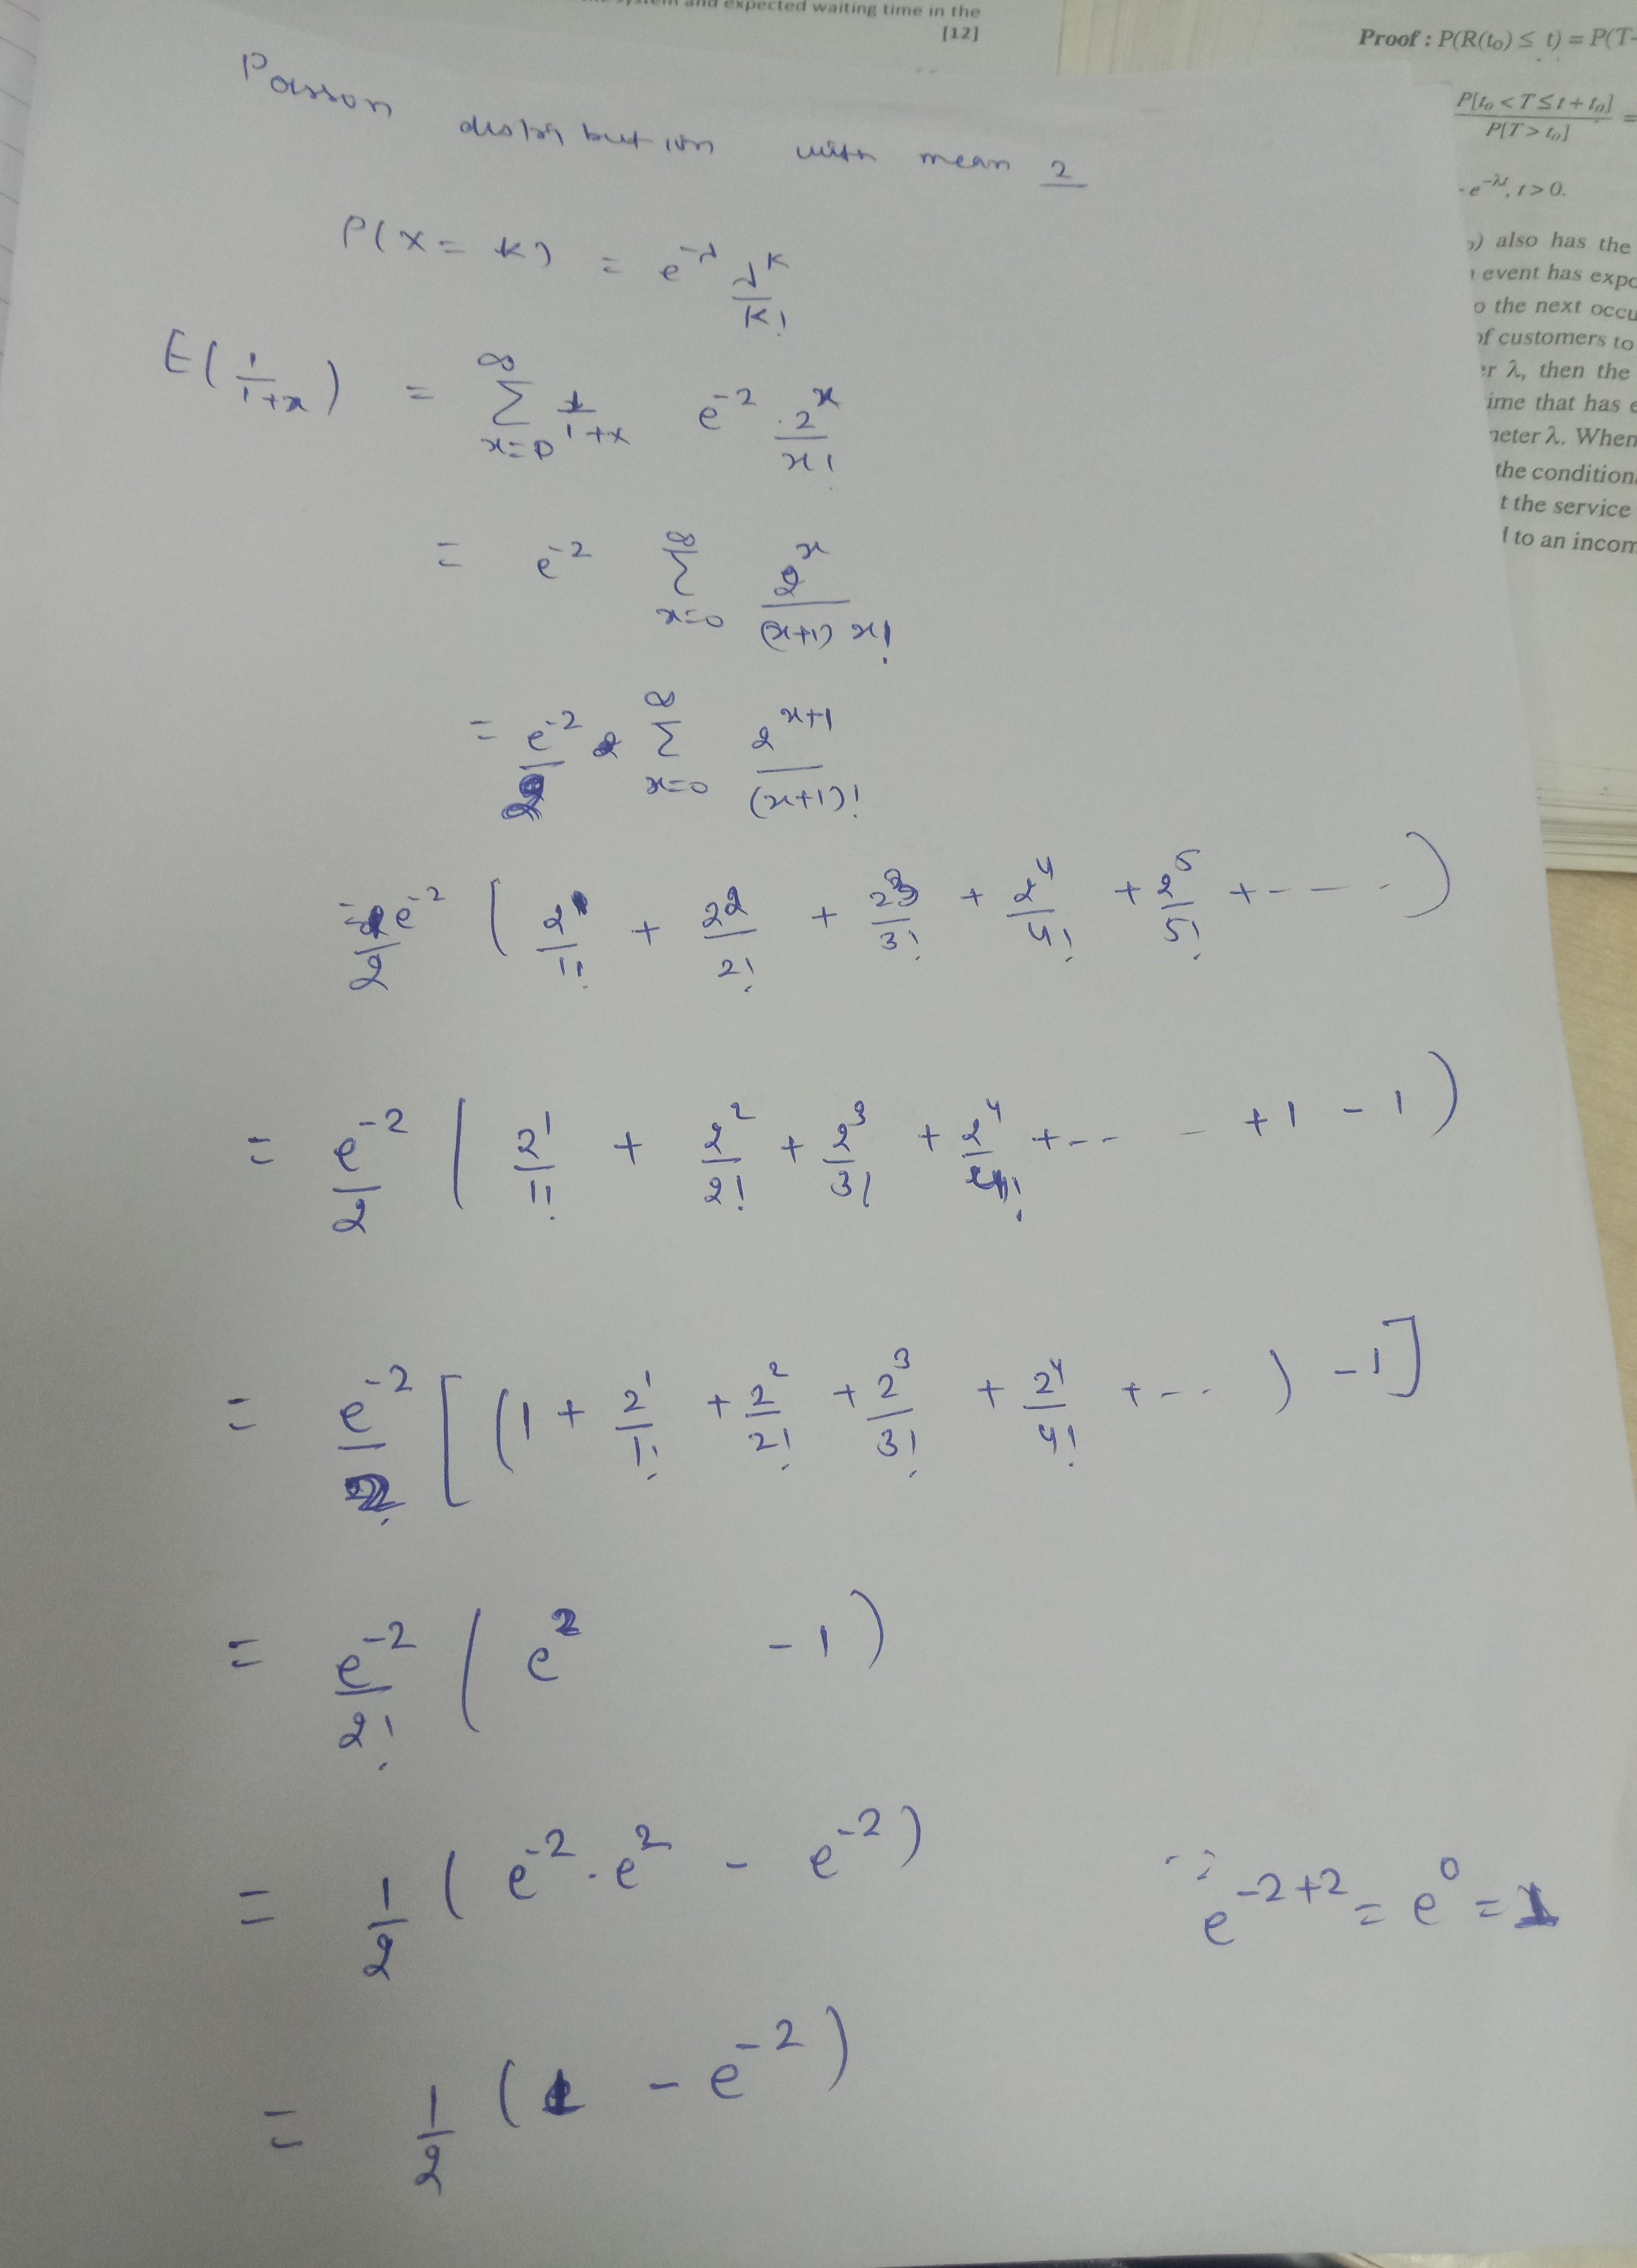 and expected waiting time in the
[12]
Proof : P(R(t₀) ≤ t) = P(T-
P[t₀ < T ≤ t + t₀]
P[T > t₀]
=
- e^-λt, t > 0.
) also has the
event has expo
o the next occu
of customers to
er λ, then the
ime that has e
neter λ. When
the condition
t the service
to an incom
Poisson distribution with mean 2
P(X = k) = e^-λ λ^k / k!
E(1/(1+x)) = ∞ Σ x=0 1/(1+x) e^-2 · 2^x / x!
= e^-2 ∞ Σ x=0 2^x / (x+1) x!
= e^-2 / 2 ∞ Σ x=0 2^(x+1) / (x+1)!
= e^-2 / 2 ( 2 / 1! + 2^2 / 2! + 2^3 / 3! + 2^4 / 4! + 2^5 / 5! + - - - - )
= e^-2 / 2 ( 2^1 / 1! + 2^2 / 2! + 2^3 / 3! + 2^4 / 4! + - - - + 1 - 1 )
= e^-2 / 2! [ ( 1 + 2^1 / 1! + 2^2 / 2! + 2^3 / 3! + 2^4 / 4! + - - - ) - 1 ]
= e^-2 / 2! ( e^2 - 1 )
= 1/2 ( e^-2 · e^2 - e^-2 ) ∵ e^(-2+2) = e^0 = 1
= 1/2 ( 1 - e^-2 )